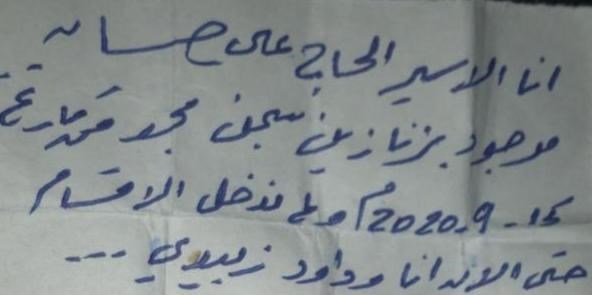 انا الاسير الحاج علي حسان
موجود بزنازين سجن مجدو من تاريخ
15-9-2020م ولم ندخل الاقسام
حتى الان انا وداود زبيدي ...